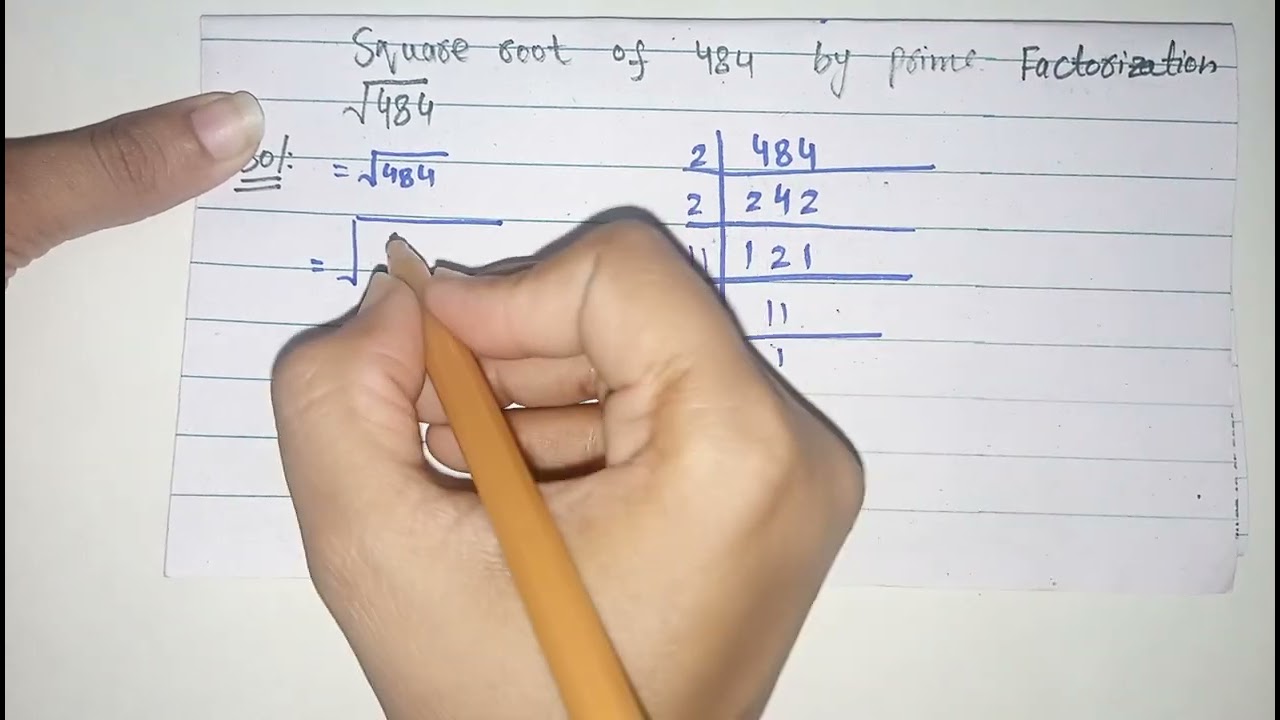 Square root of 484 by prime Factorization
√484
= √484
= √
2 | 484
2 | 242
11 | 121
11
1